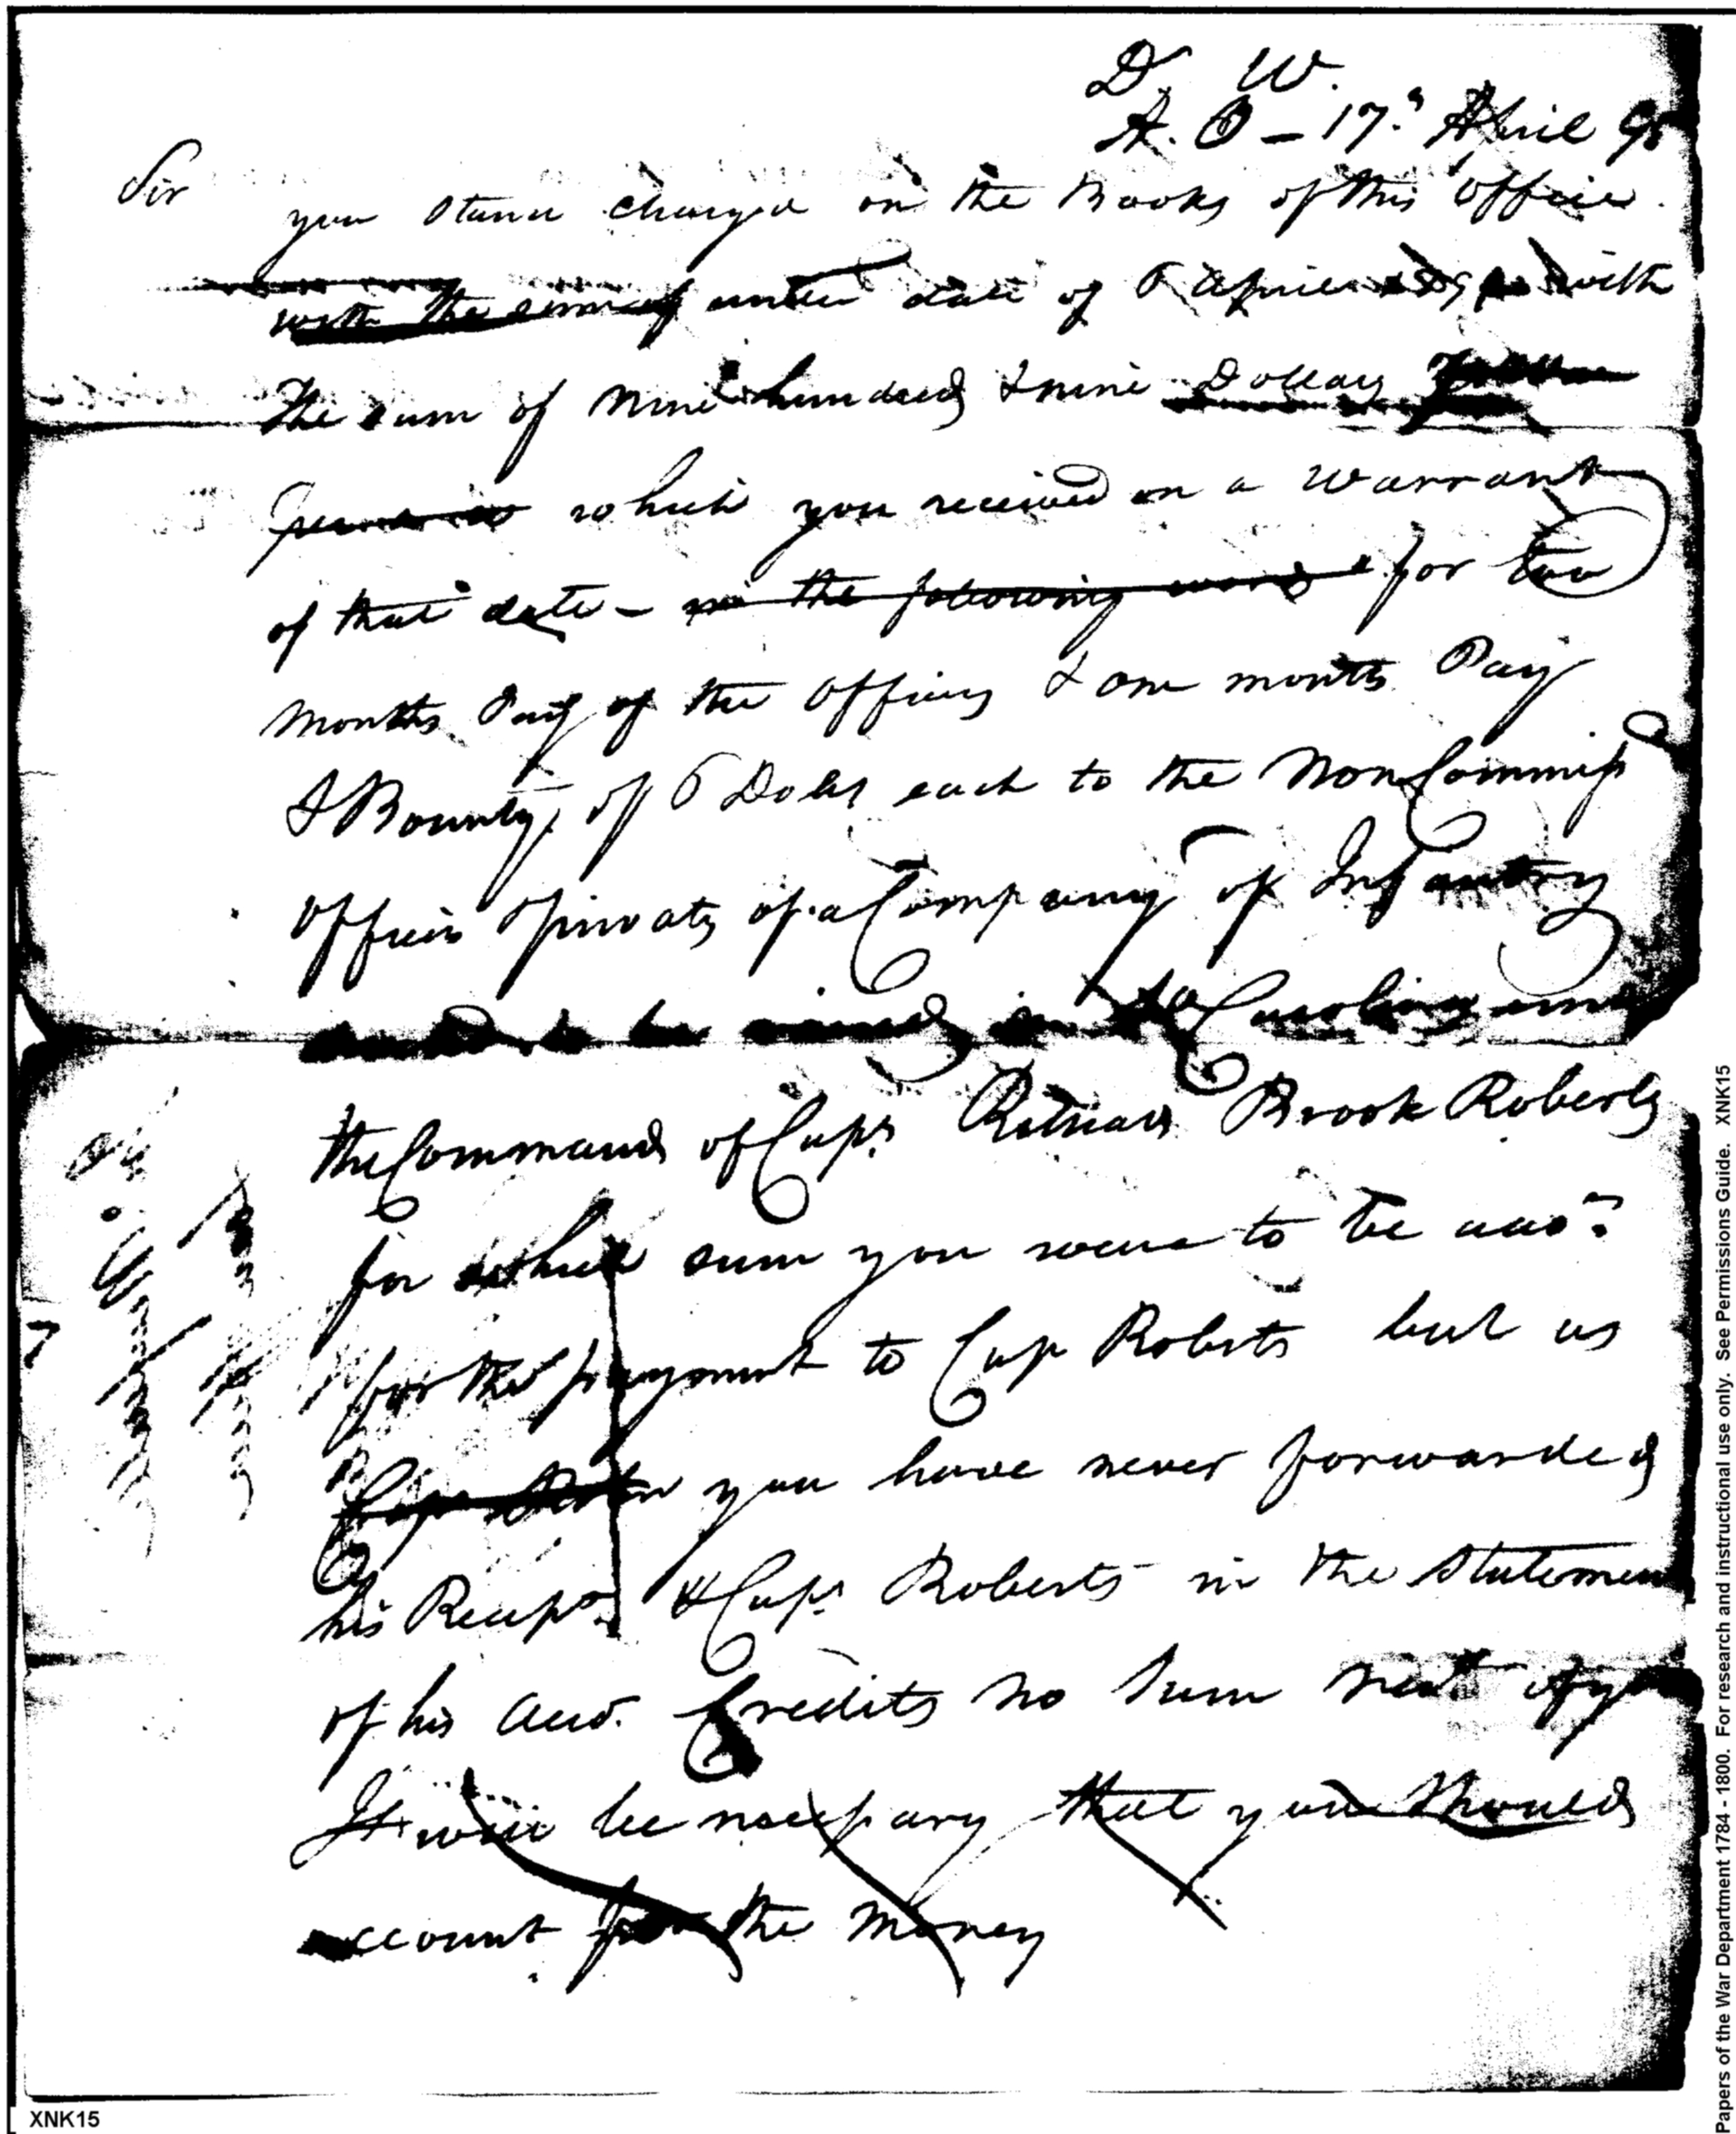 D. W.
A. O - 17th April 98
Sir
you stand charged on the Books of this office
with the sum of under date of 6 April with
the sum of Nine hundred & nine Dollars
which you received on a Warrant
of that date - in the following words for two
Months Pay of the Officers & one months Pay
& Bounty of 6 Dolls each to the Non Commiss
Officers & privates of a Company of Infantry
to be raised in So Carolina
the Command of Capt. Richard Brook Roberts
for which sum you were to be acco
for the payment to Cap Roberts but as
you have never forwarded
his Receipt & Capt Roberts in the Statement
of his Acco. Credits no Sum
It will be necessary that you should
account for the Money
XNK15
Papers of the War Department 1784 - 1800. For research and instructional use only. See Permissions Guide. XNK15